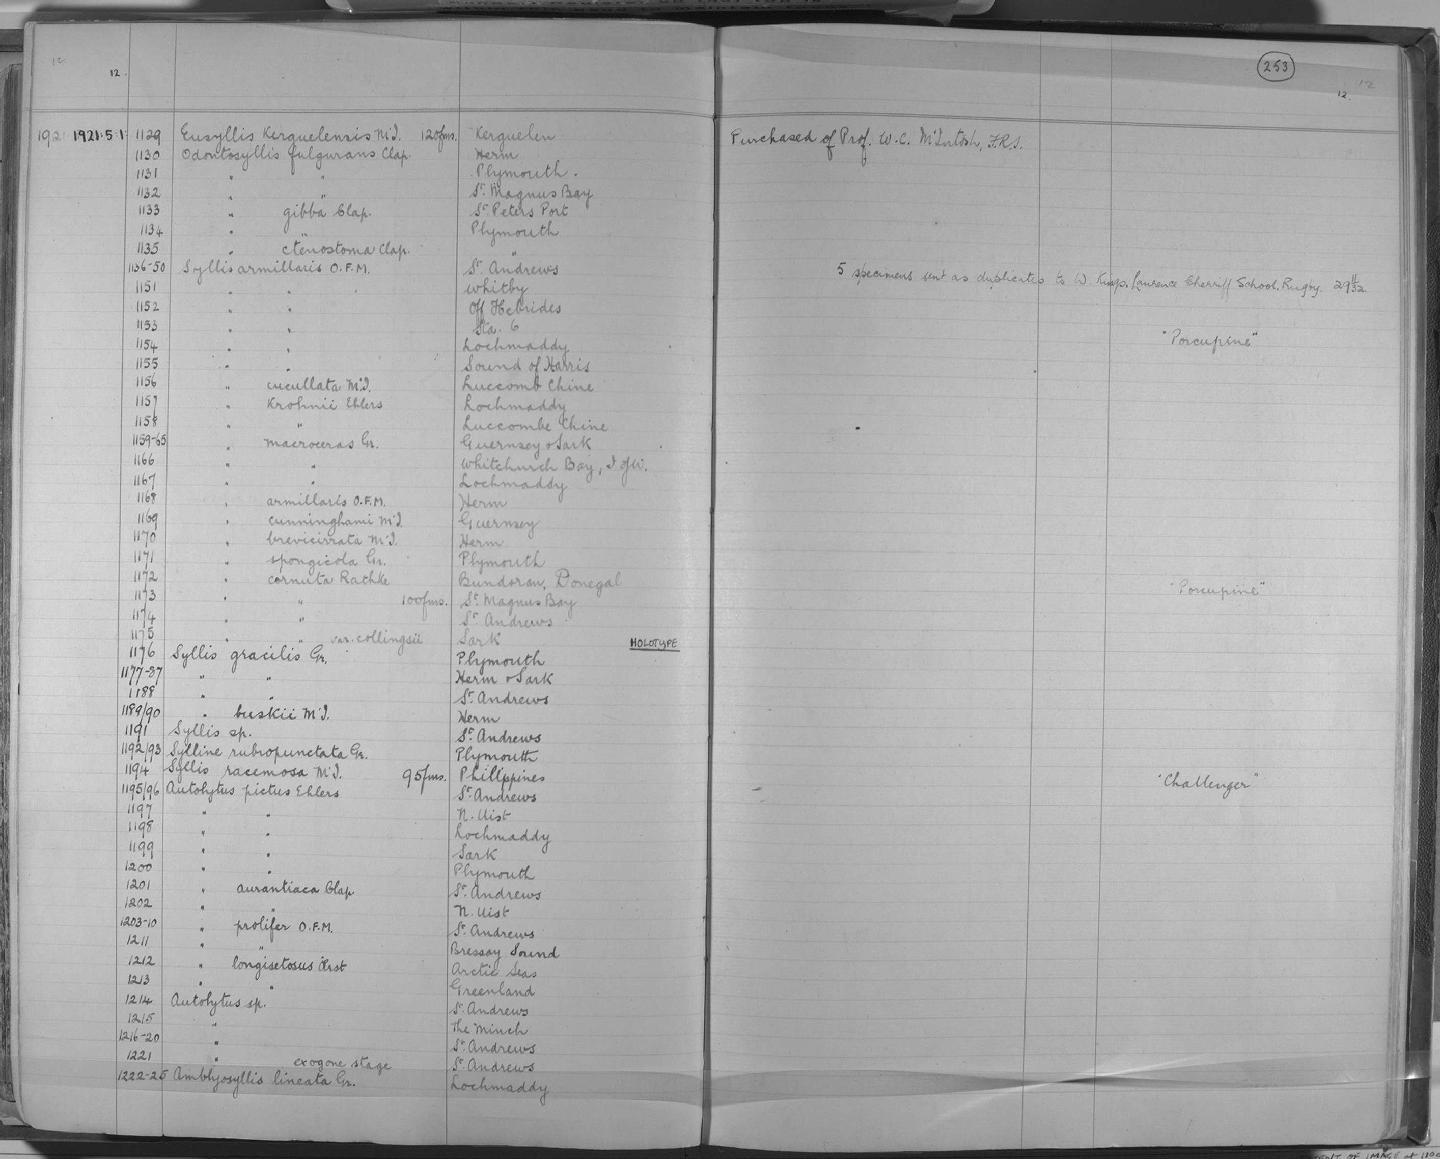 12 12. 253 12. 12
192 1921.5.1 1129 Eusyllis Kerguelensis McI. 120fms. Kerguelen Purchased of Prof. W.C. McIntosh, F.R.S.
1130 Odontosyllis fulgurans Clap. Herm
1131 " " Plymouth.
1132 " " St. Magnus Bay
1133 " gibba Clap. St. Peters Port
1134 " " Plymouth
1135 " ctenostoma Clap. "
1136-50 Syllis armillaris O.F.M. St. Andrews 5 specimens sent as duplicates to W. Laurence Sherriff School, Rugby.
1151 " " Whitby
1152 " " Off Hebrides
1153 " " Sta. 6 "Porcupine"
1154 " " Lochmaddy
1155 " " Sound of Harris
1156 " cucullata McI. Luccomb Chine
1157 " Krohnii Ehlers Lochmaddy
1158 " " Luccombe Chine
1159-65 " macroceras Gr. Guernsey & Sark
1166 " " Whitchurch Bay, I of W.
1167 " " Lochmaddy
1168 " armillaris O.F.M. Herm
1169 " cunninghami McI. Guernsey
1170 " brevicirrata McI. Herm
1171 " spongicola Gr. Plymouth
1172 " cornuta Rathke Bundoran, Donegal "Porcupine"
1173 " " 100fms. St. Magnus Bay
1174 " " St. Andrews
1175 " " var. collingsii Sark HOLOTYPE
1176 Syllis gracilis Gr. Plymouth
1177-87 " " Herm & Sark
1188 " " St. Andrews
1189/90 " buskii McI. Herm
1191 Syllis sp. St. Andrews
1192/93 Sylline rubropunctata Gr. Plymouth
1194 Syllis racemosa McI. 95fms. Philippines "Challenger"
1195/96 Autolytus pictus Ehlers St. Andrews
1197 " " N. Uist
1198 " " Lochmaddy
1199 " " Sark
1200 " " Plymouth
1201 " aurantiaca Clap. St. Andrews
1202 " " N. Uist
1203-10 " prolifer O.F.M. St. Andrews
1211 " " Bressay Sound
1212 " longisetosus Örst Arctic Seas
1213 " " Greenland
1214 Autolytus sp. St. Andrews
1215 " The Minch
1216-20 " St. Andrews
1221 " exogone stage St. Andrews
1222-25 Amblyosyllis lineata Gr. Lochmaddy